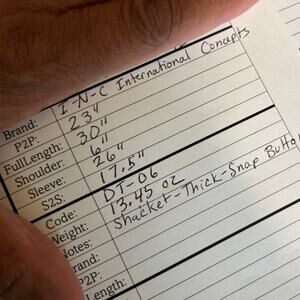 Brand: I-N-C International Concepts
P2P: 23"
FullLength: 30"
Shoulder: 6"
Sleeve: 26"
S2S: 17.5"
Code: DT-06
Weight: 13.45 oz
Notes: Shacket-Thick-Snap Butto
Brand:
P2P:
Length: